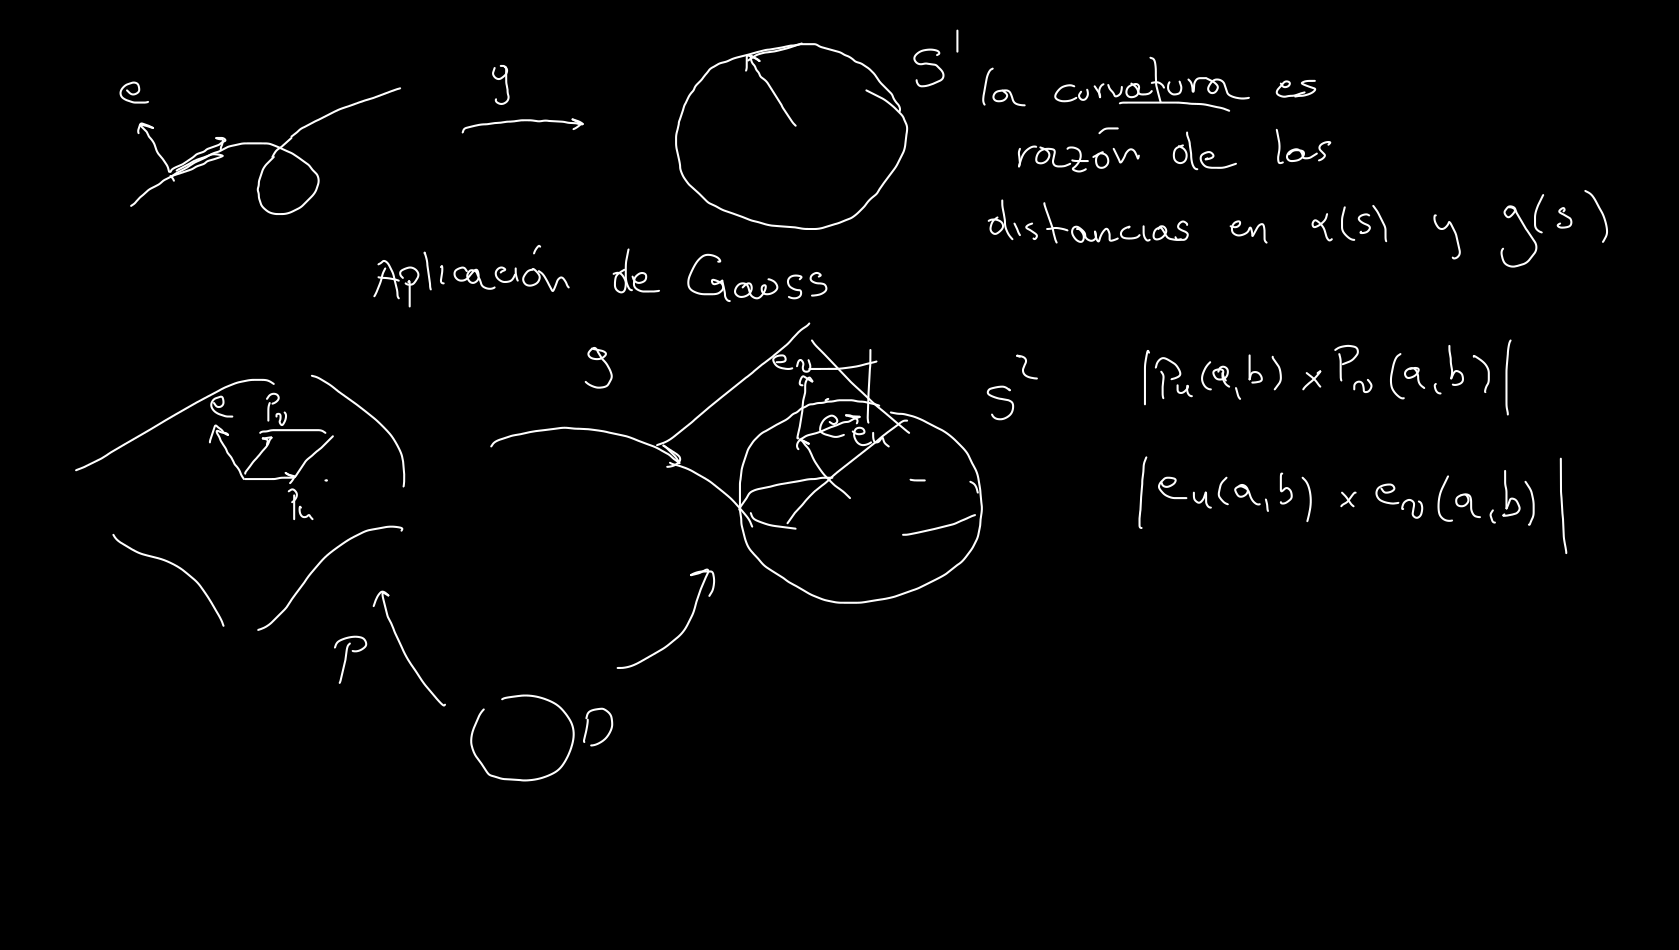 e
g
S¹
la curvatura es
razón de las
distancias en α(s) y g(s)
Aplicación de Gauss
e
Pᵥ
Pᵤ
g
eᵥ
e
eᵤ
S²
|Pᵤ(a,b) × Pᵥ(a,b)|
|eᵤ(a,b) × eᵥ(a,b)|
P
D